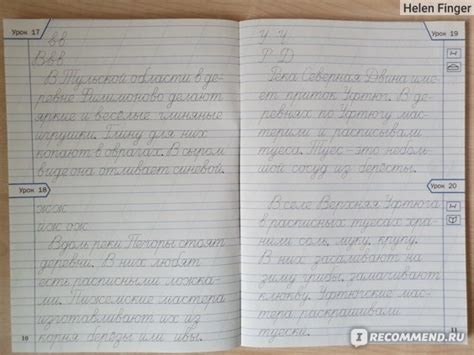 Helen Finger
Урок 17
вв
Ввв
В Тульской области в де-
ревне Филимоново делают
яркие и весёлые глиняные
игрушки. Глину для них
копают в оврагах. В сыром
виде она отливает синевой.
Урок 18
жж
иж ож
Вдоль реки Печоры стоят
деревни. В них любят
есть расписными ложка-
ми. Пижемские мастера
изготавливают их из
корня берёзы или ивы.
10
Урок 19
У Ч
Р Д
Река Северная Двина име-
ет приток Уфтюг. В де-
ревнях по Уфтюгу мас-
терили и расписывали
туеса. Туес – это неболь-
шой сосуд из берёсты.
Урок 20
В селе Верхняя Уфтюга
в расписных туесах хра-
нили соль, муку, крупу.
В них засаливают на
зиму грибы, замачивают
клюкву. Уфтюгские мас-
тера раскрашивали
туески.
11
RECOMMEND.RU